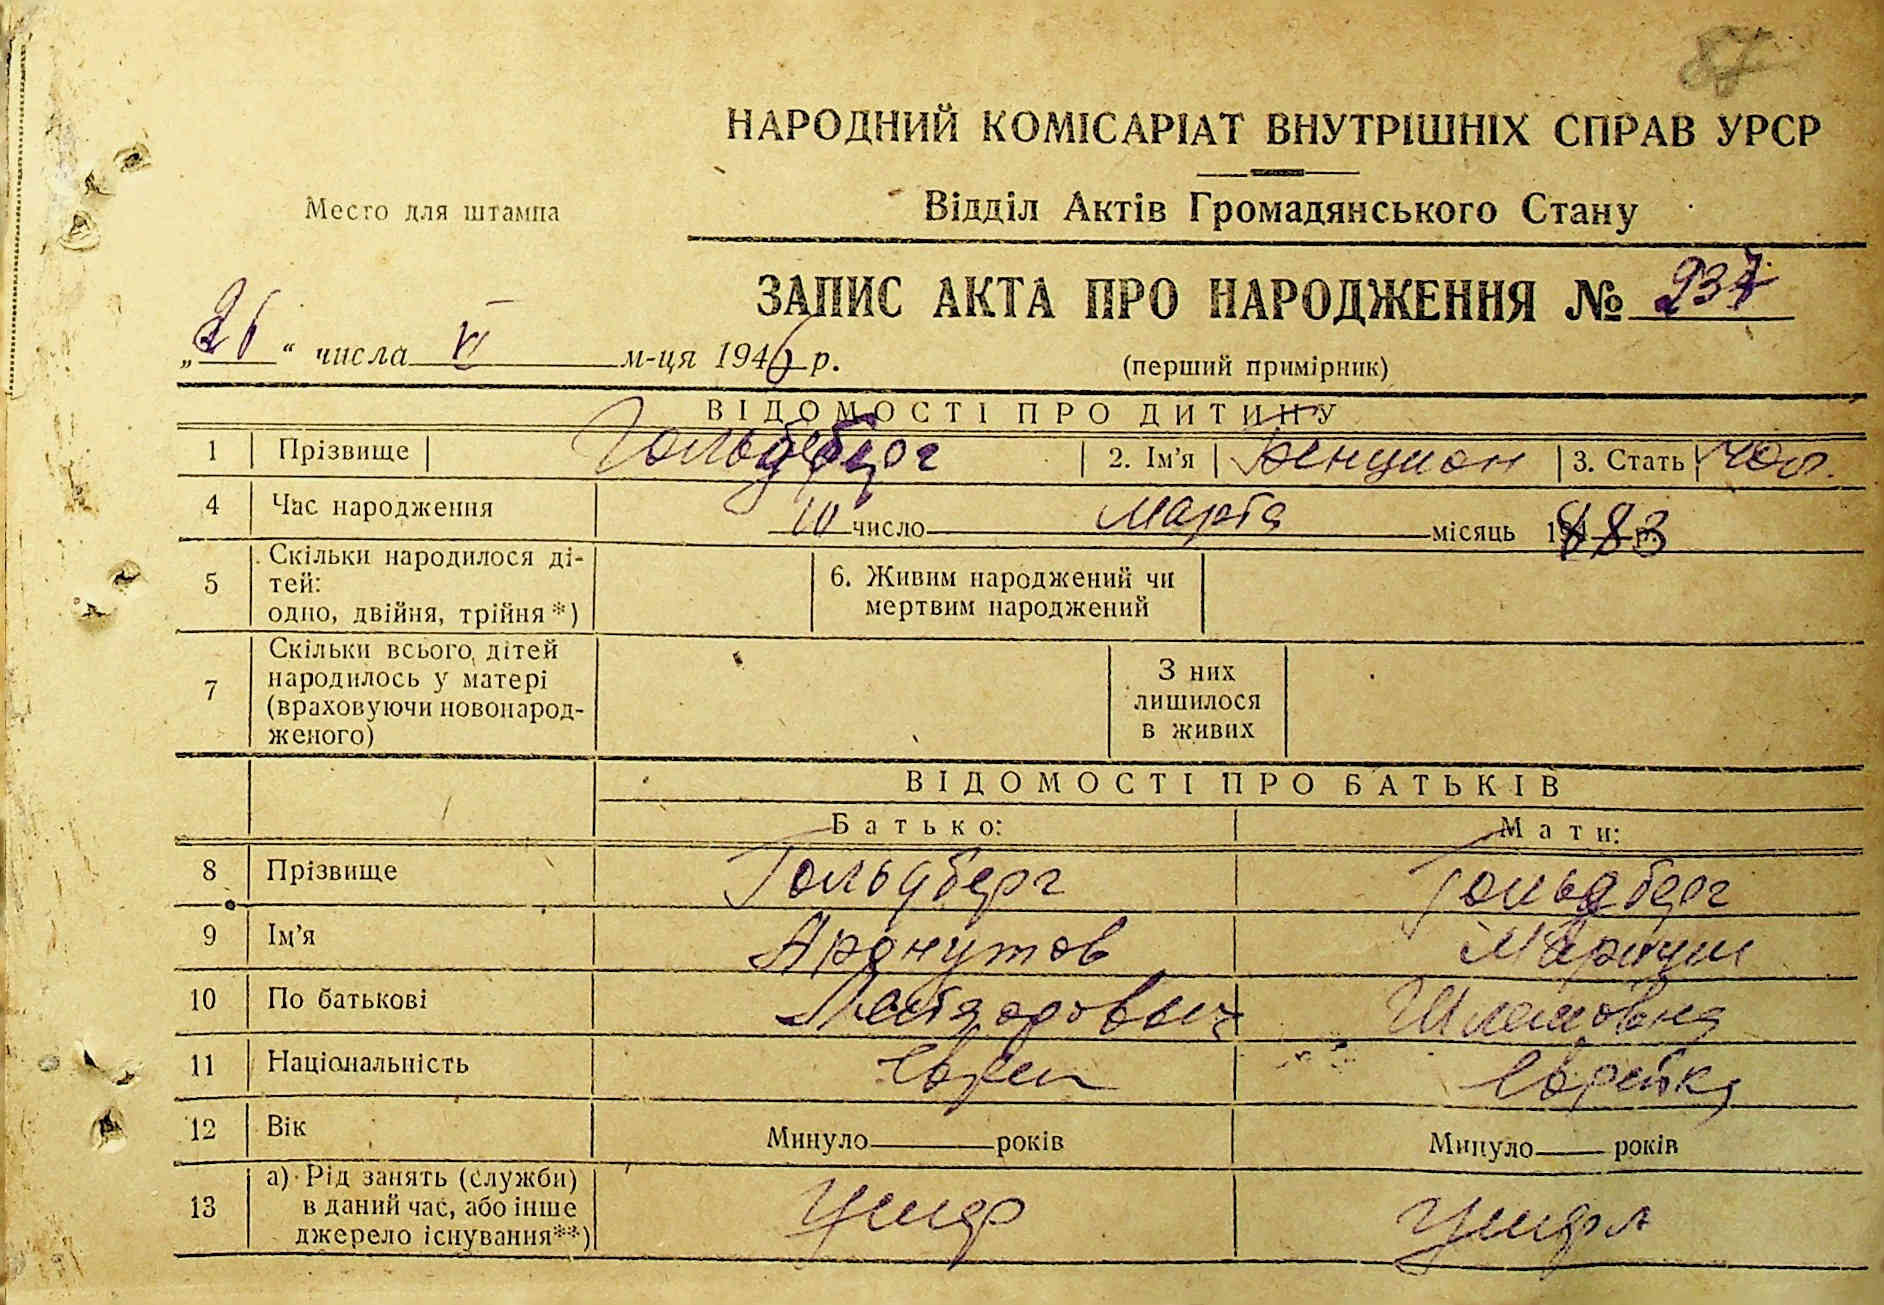 87
НАРОДНИЙ КОМІСАРІАТ ВНУТРІШНІХ СПРАВ УРСР
Место для штампа
Відділ Актів Громадянського Стану
ЗАПИС АКТА ПРО НАРОДЖЕННЯ № 237
„26“ числа VI м-ця 1946 р.
(перший примірник)
ВІДОМОСТІ ПРО ДИТИНУ
1 Прізвище Гольдберг 2. Ім'я Бенцион 3. Стать
4 Час народження 10 число марта місяць 1883
5 Скільки народилося ді-
тей:
одно, двійня, трійня*)
6. Живим народжений чи
мертвим народжений
7 Скільки всього дітей
народилось у матері
(враховуючи новонарод-
женого)
З них
лишилося
в живих
ВІДОМОСТІ ПРО БАТЬКІВ
Батько: Мати:
8 Прізвище Гольдберг Гольдберг
9 Ім'я
10 По батькові Шлемовна
11 Національність Еврей Еврейка
12 Вік Минуло років Минуло років
13 а) Рід занять (служби)
в даний час, або інше
джерело існування**)